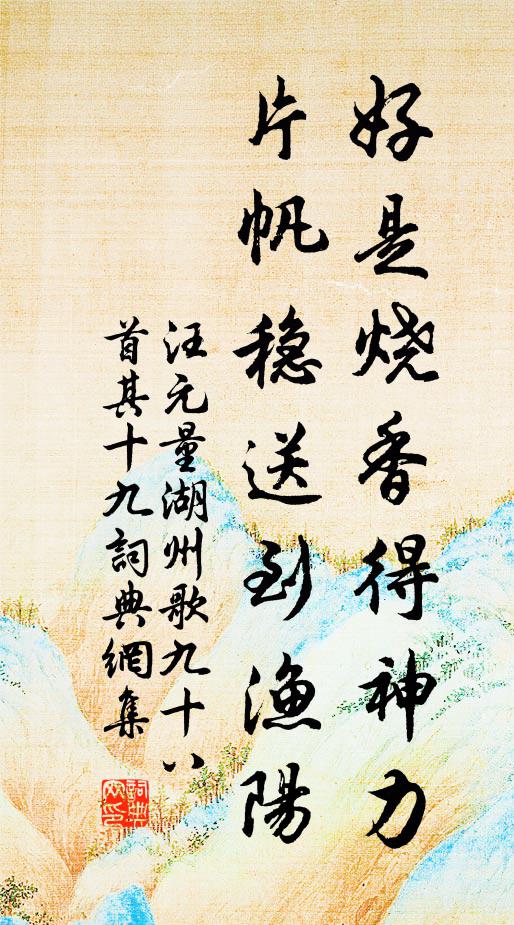 好是烧香得神力
片帆稳送到渔陽
汪元量湖州歌九十八
首其十九詞典網集